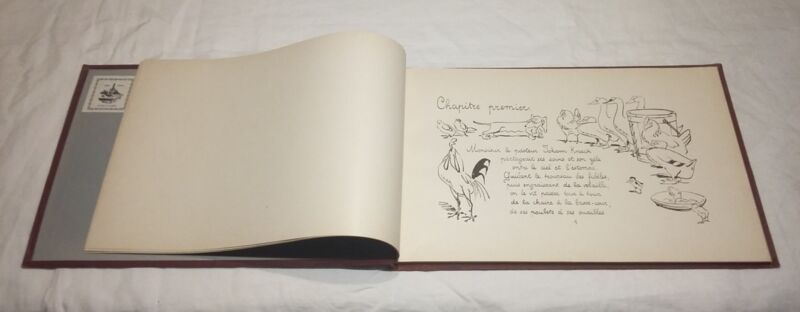 Chapitre premier.
Monsieur le pasteur Johann Knasch
partageait ses soins et son zèle
entre le ciel et l'estomac.
Guidant le troupeau des fidèles,
puis engraissant de la volaille,
on le vit passer tour à tour
de la chaire à la basse-cour,
de ses poulets à ses ouailles